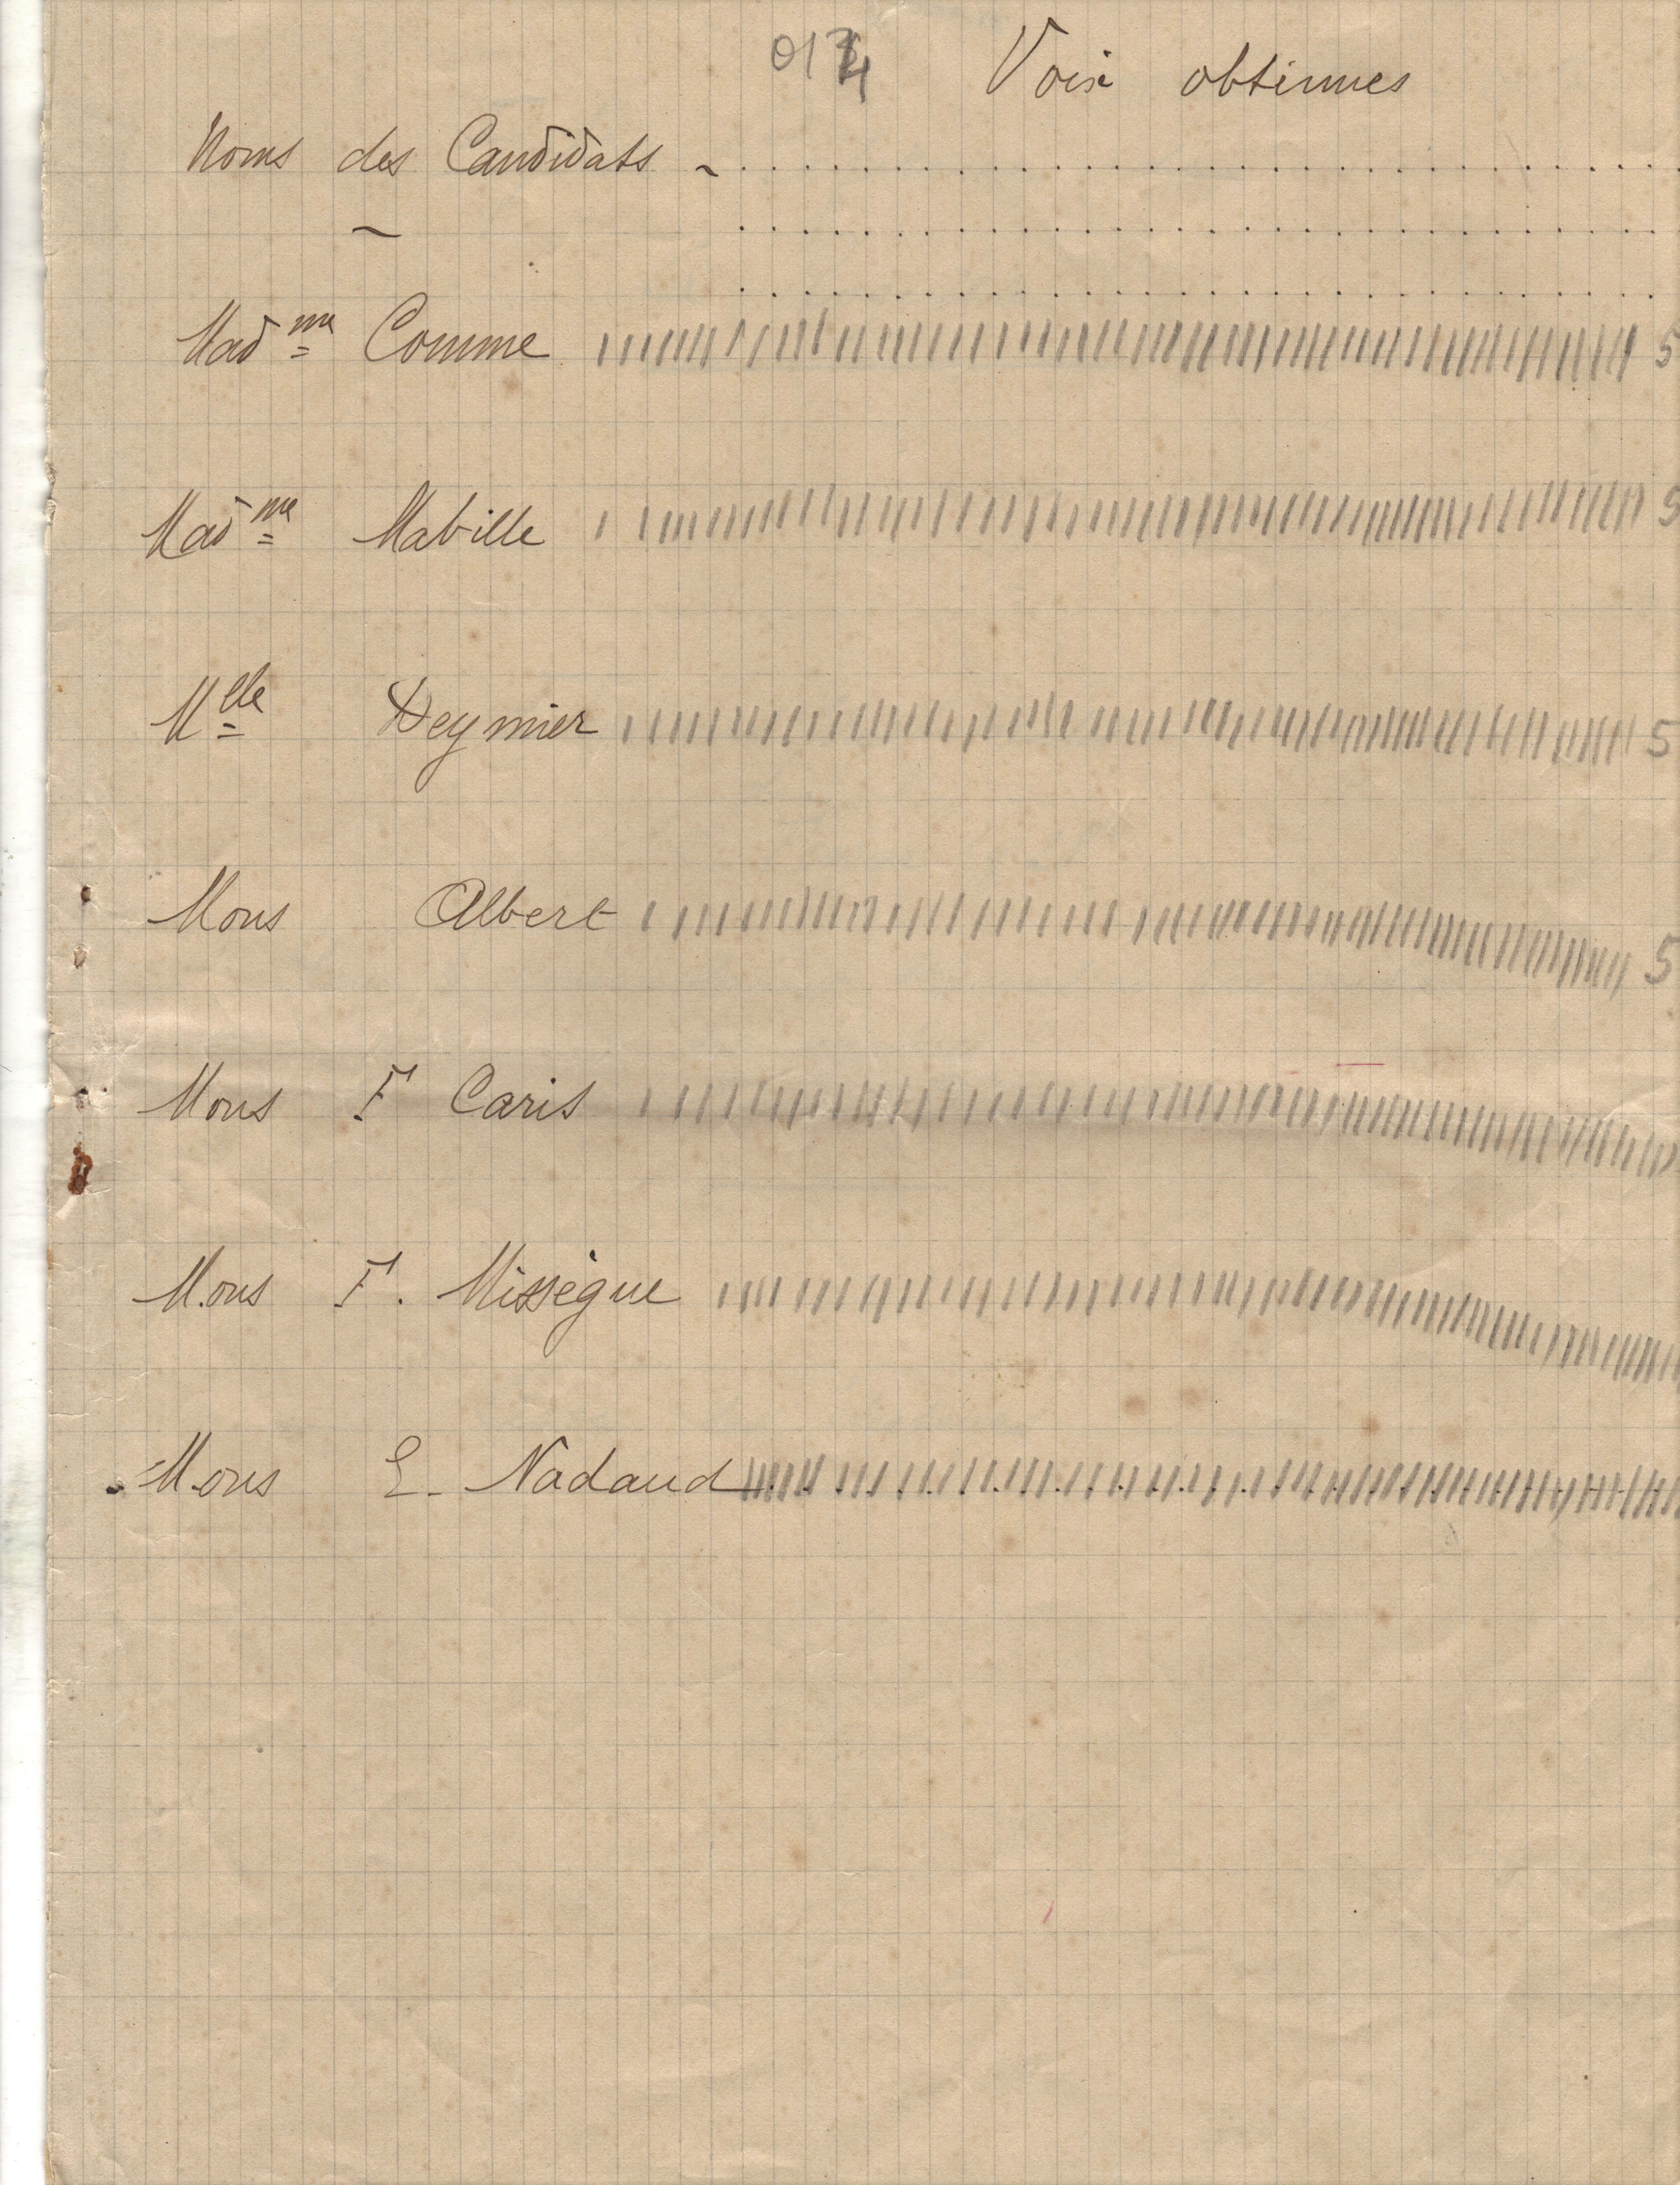 Voix obtenues
Noms des Candidats
Mad me Comme 5
Mad me Mabille 5
Mlle Deymier 5
Mons Albert 5
Mons F Caris
Mons F. Missègue
Mons E. Nadaud